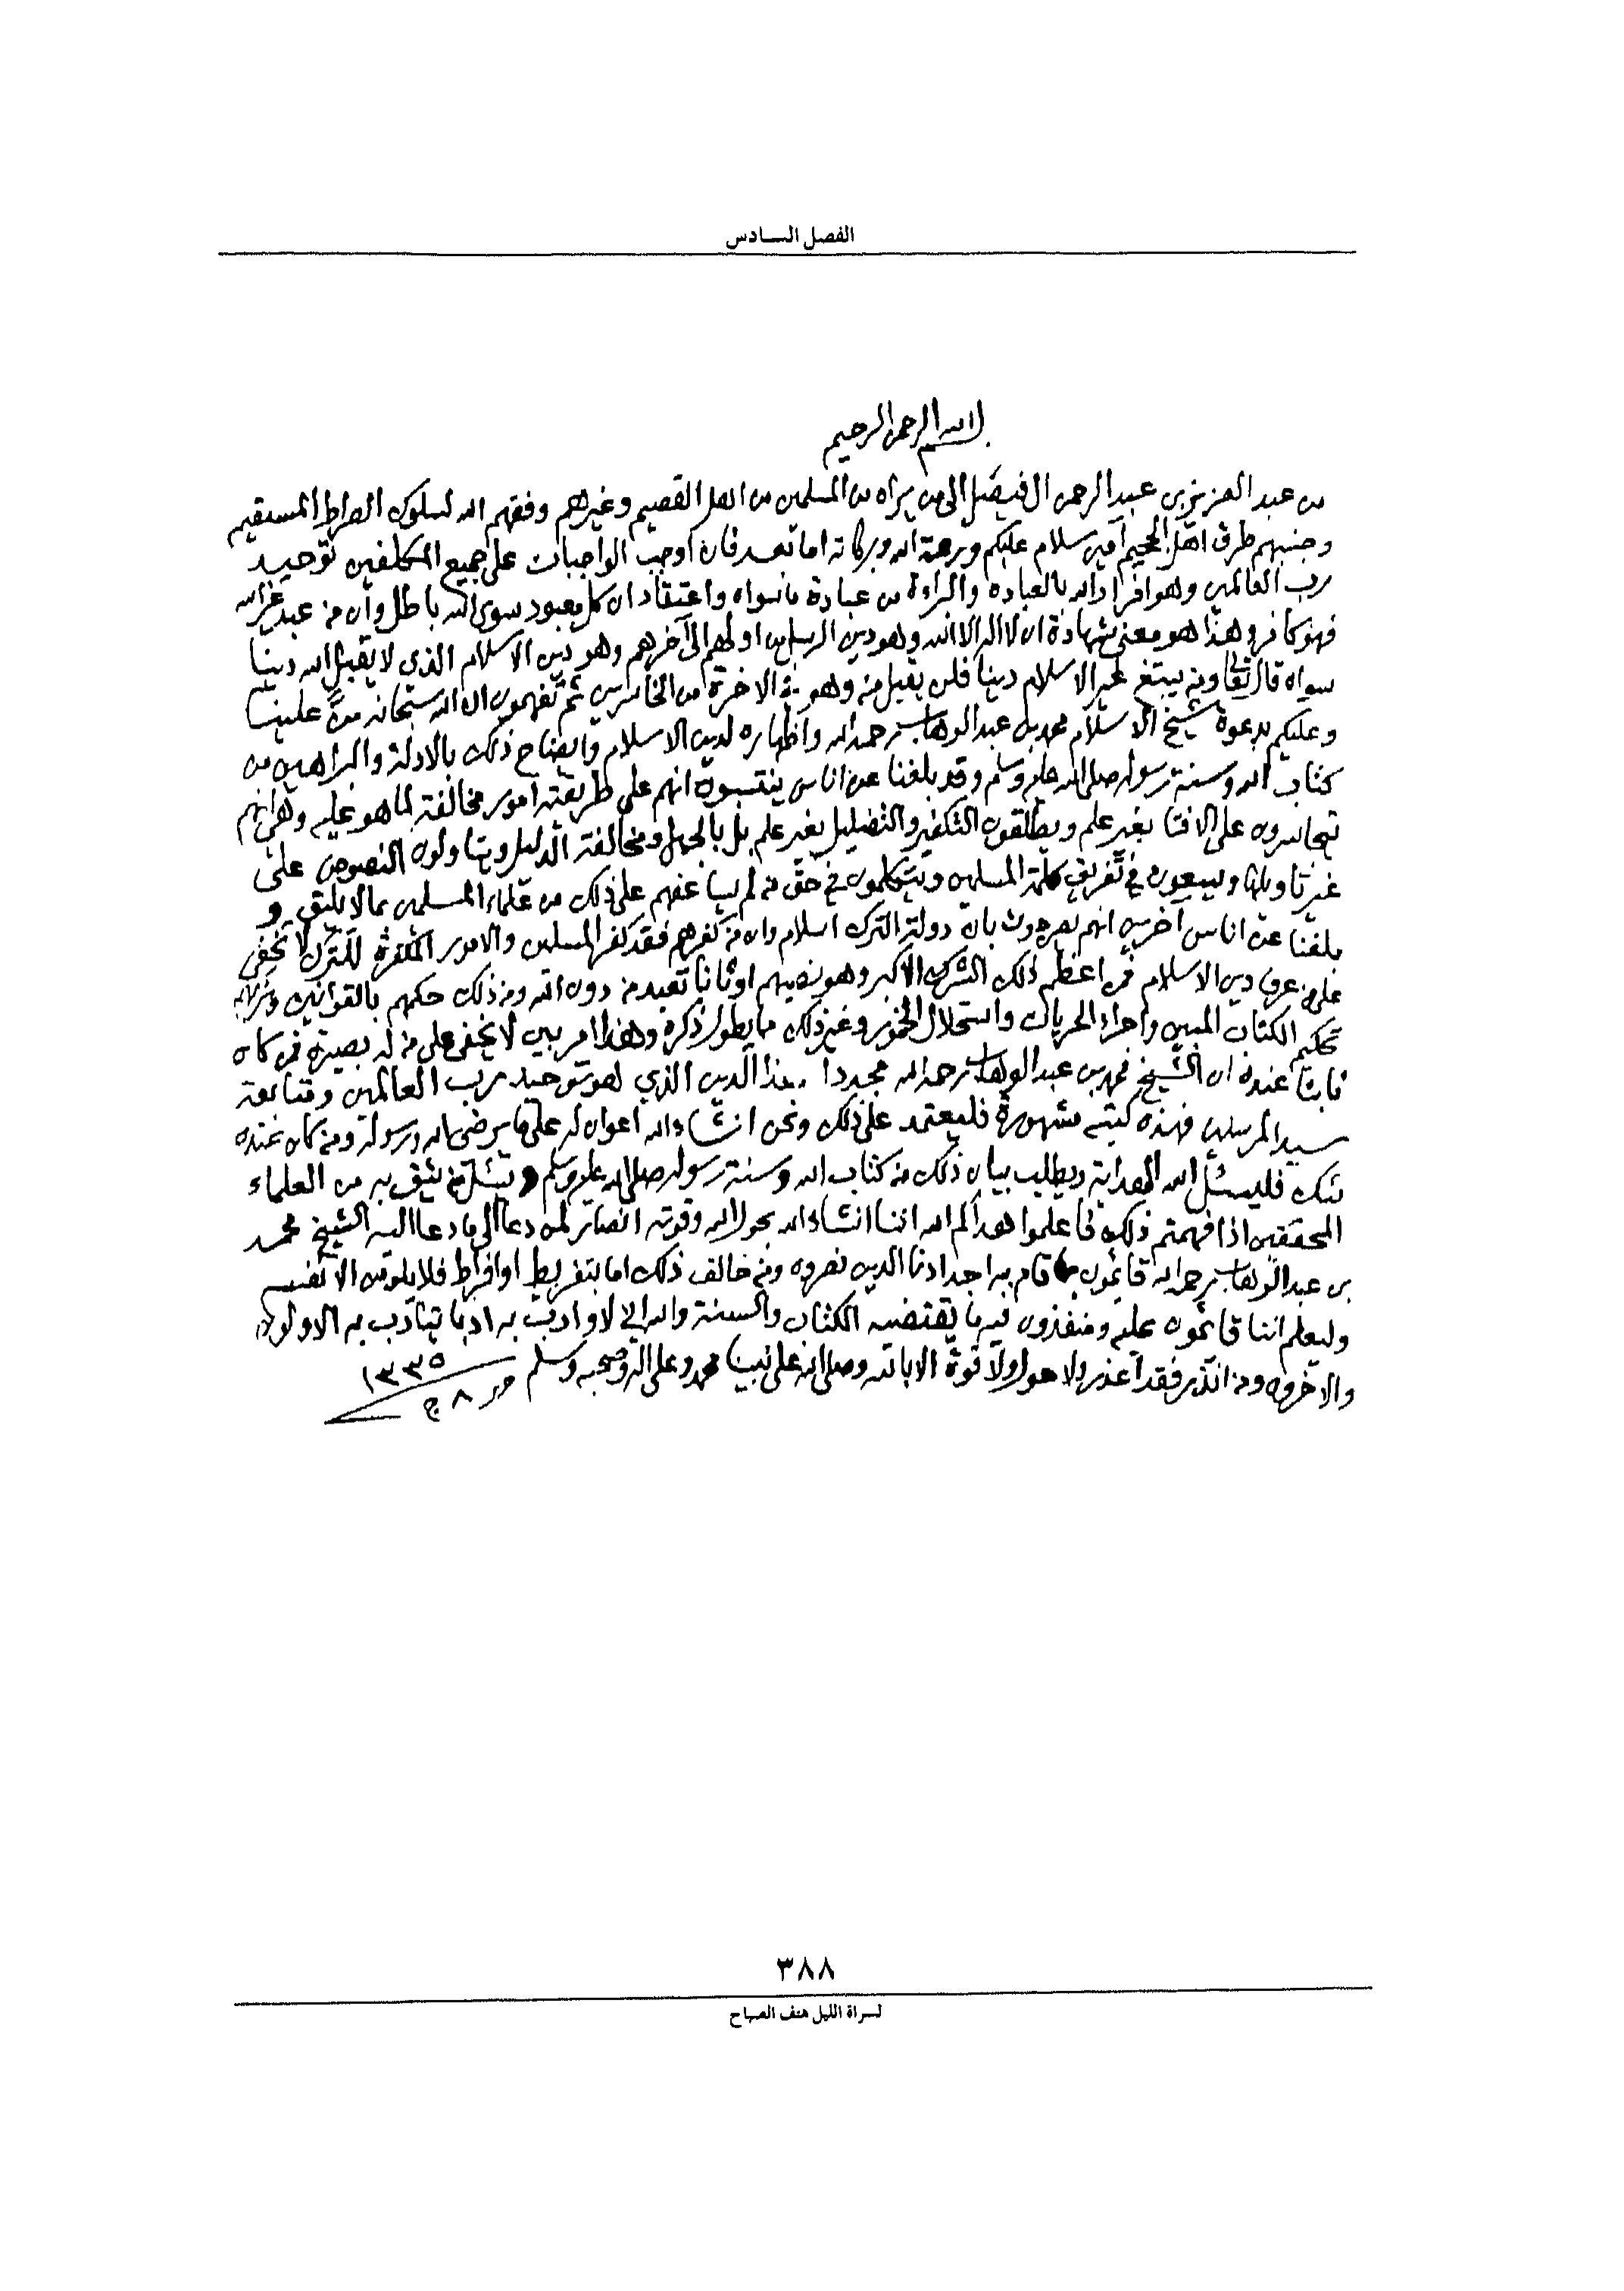 الفصل السادس
بسم الله الرحمن الرحيم
من عبد العزيز بن عبد الرحمن ال فيصل الى من يراه من المسلمين من اهل القصيم وغيرهم وفقهم الله لسلوك الصراط المستقيم
وجنبهم طرق اهل الجحيم آمين سلام عليكم ورحمة الله وبركاته اما بعد فان اوجب الواجبات على جميع المكلفين توحيد
رب العالمين وهو افراد الله بالعباده والبراءة من عبادة ما سواه واعتقاد ان كل معبود سوى الله باطل وأن من عبد غير الله
فهو كافر وهذا هو معنى شهادة ان لا اله الا الله وهو دين الرسل من اولهم الى آخرهم وهو دين الاسلام الذي لا يقبل الله دينا
سواه قال تعالى ومن يبتغ غير الاسلام دينا فلن يقبل منه وهو في الاخرة من الخاسرين ثم تفهمون ان الله سبحانه منّ علينا
وعليكم بدعوة شيخ الاسلام محمد بن عبد الوهاب رحمه الله واظهاره لدين الاسلام وايضاح ذلك بالادلة والبراهين من
كتاب الله وسنة رسوله صلى الله عليه وسلم وقد بلغنا عن اناس ينتسبون انهم على طريقته امور مخالفة لما هو عليه وهي انهم
تجاسروا على الافتا بغير علم ويطلقون التكفير والتضليل بغير علم بل بالجهل ومخالفة الدليل ويتاولون النصوص على
غير تاويلها ويسعون في تفريق كلمة المسلمين ويتكلمون في حق من لم يساعفهم على ذلك من علماء المسلمين بما لا يليق و
بلغنا عن اناس آخرين انهم يصرحون بان دولة الترك اسلام وان من كفرهم فقد كفر المسلمين والامور المكفرة للترك لا تخفى
على من عرف دين الاسلام فمن اعظم ذلك الشرك الاكبر وهو نصبهم اوثانا تعبد من دون الله ومن ذلك حكمهم بالقوانين وتركهم
تحكيم الكتاب المبين واجراء الحريات واستحلال الخمور وغير ذلك مما يطول ذكره وهذا امر بين لا يخفى على من له بصيرة فمن كان
ثابتا عنده ان الشيخ محمد بن عبد الوهاب رحمه الله مجددا لهذا الدين الذي هو توحيد رب العالمين ومتابعة
سيد المرسلين فهذه كتبه مشهورة فليعتمد على ذلك ونحن انشاء الله اعوان له على ما يرضي الله ورسوله ومن كان عنده
شك فليسئل الله الهداية ويطلب بيان ذلك من كتاب الله وسنة رسوله صلى الله عليه وسلم ويسئل من يثق به من العلماء
المحققين اذا فهمتم ذلك فاعلموا هداكم الله اننا انشاء الله بحول الله وقوته انصار لمن دعا الى ما دعا اليه الشيخ محمد
بن عبد الوهاب رحمه الله قائمون بما قام به اجدادنا الذين نصروه ومن خالف ذلك اما بتفريط او افراط فلا يلومن الا نفسه
وليعلم اننا قائمون عليه ومنفذون فيه ما يقتضيه الكتاب والسنة والله اني لاؤدبن به ادبا يتأدب به الاولون
والاخرون ومن انذر فقد اعذر ولا حول ولا قوة الا بالله وصلى الله على نبينا محمد وعلى اله وصحبه وسلم حرر ٨ ج
١٣٣٥
٣٨٨
لسراة الليل هتف الصباح